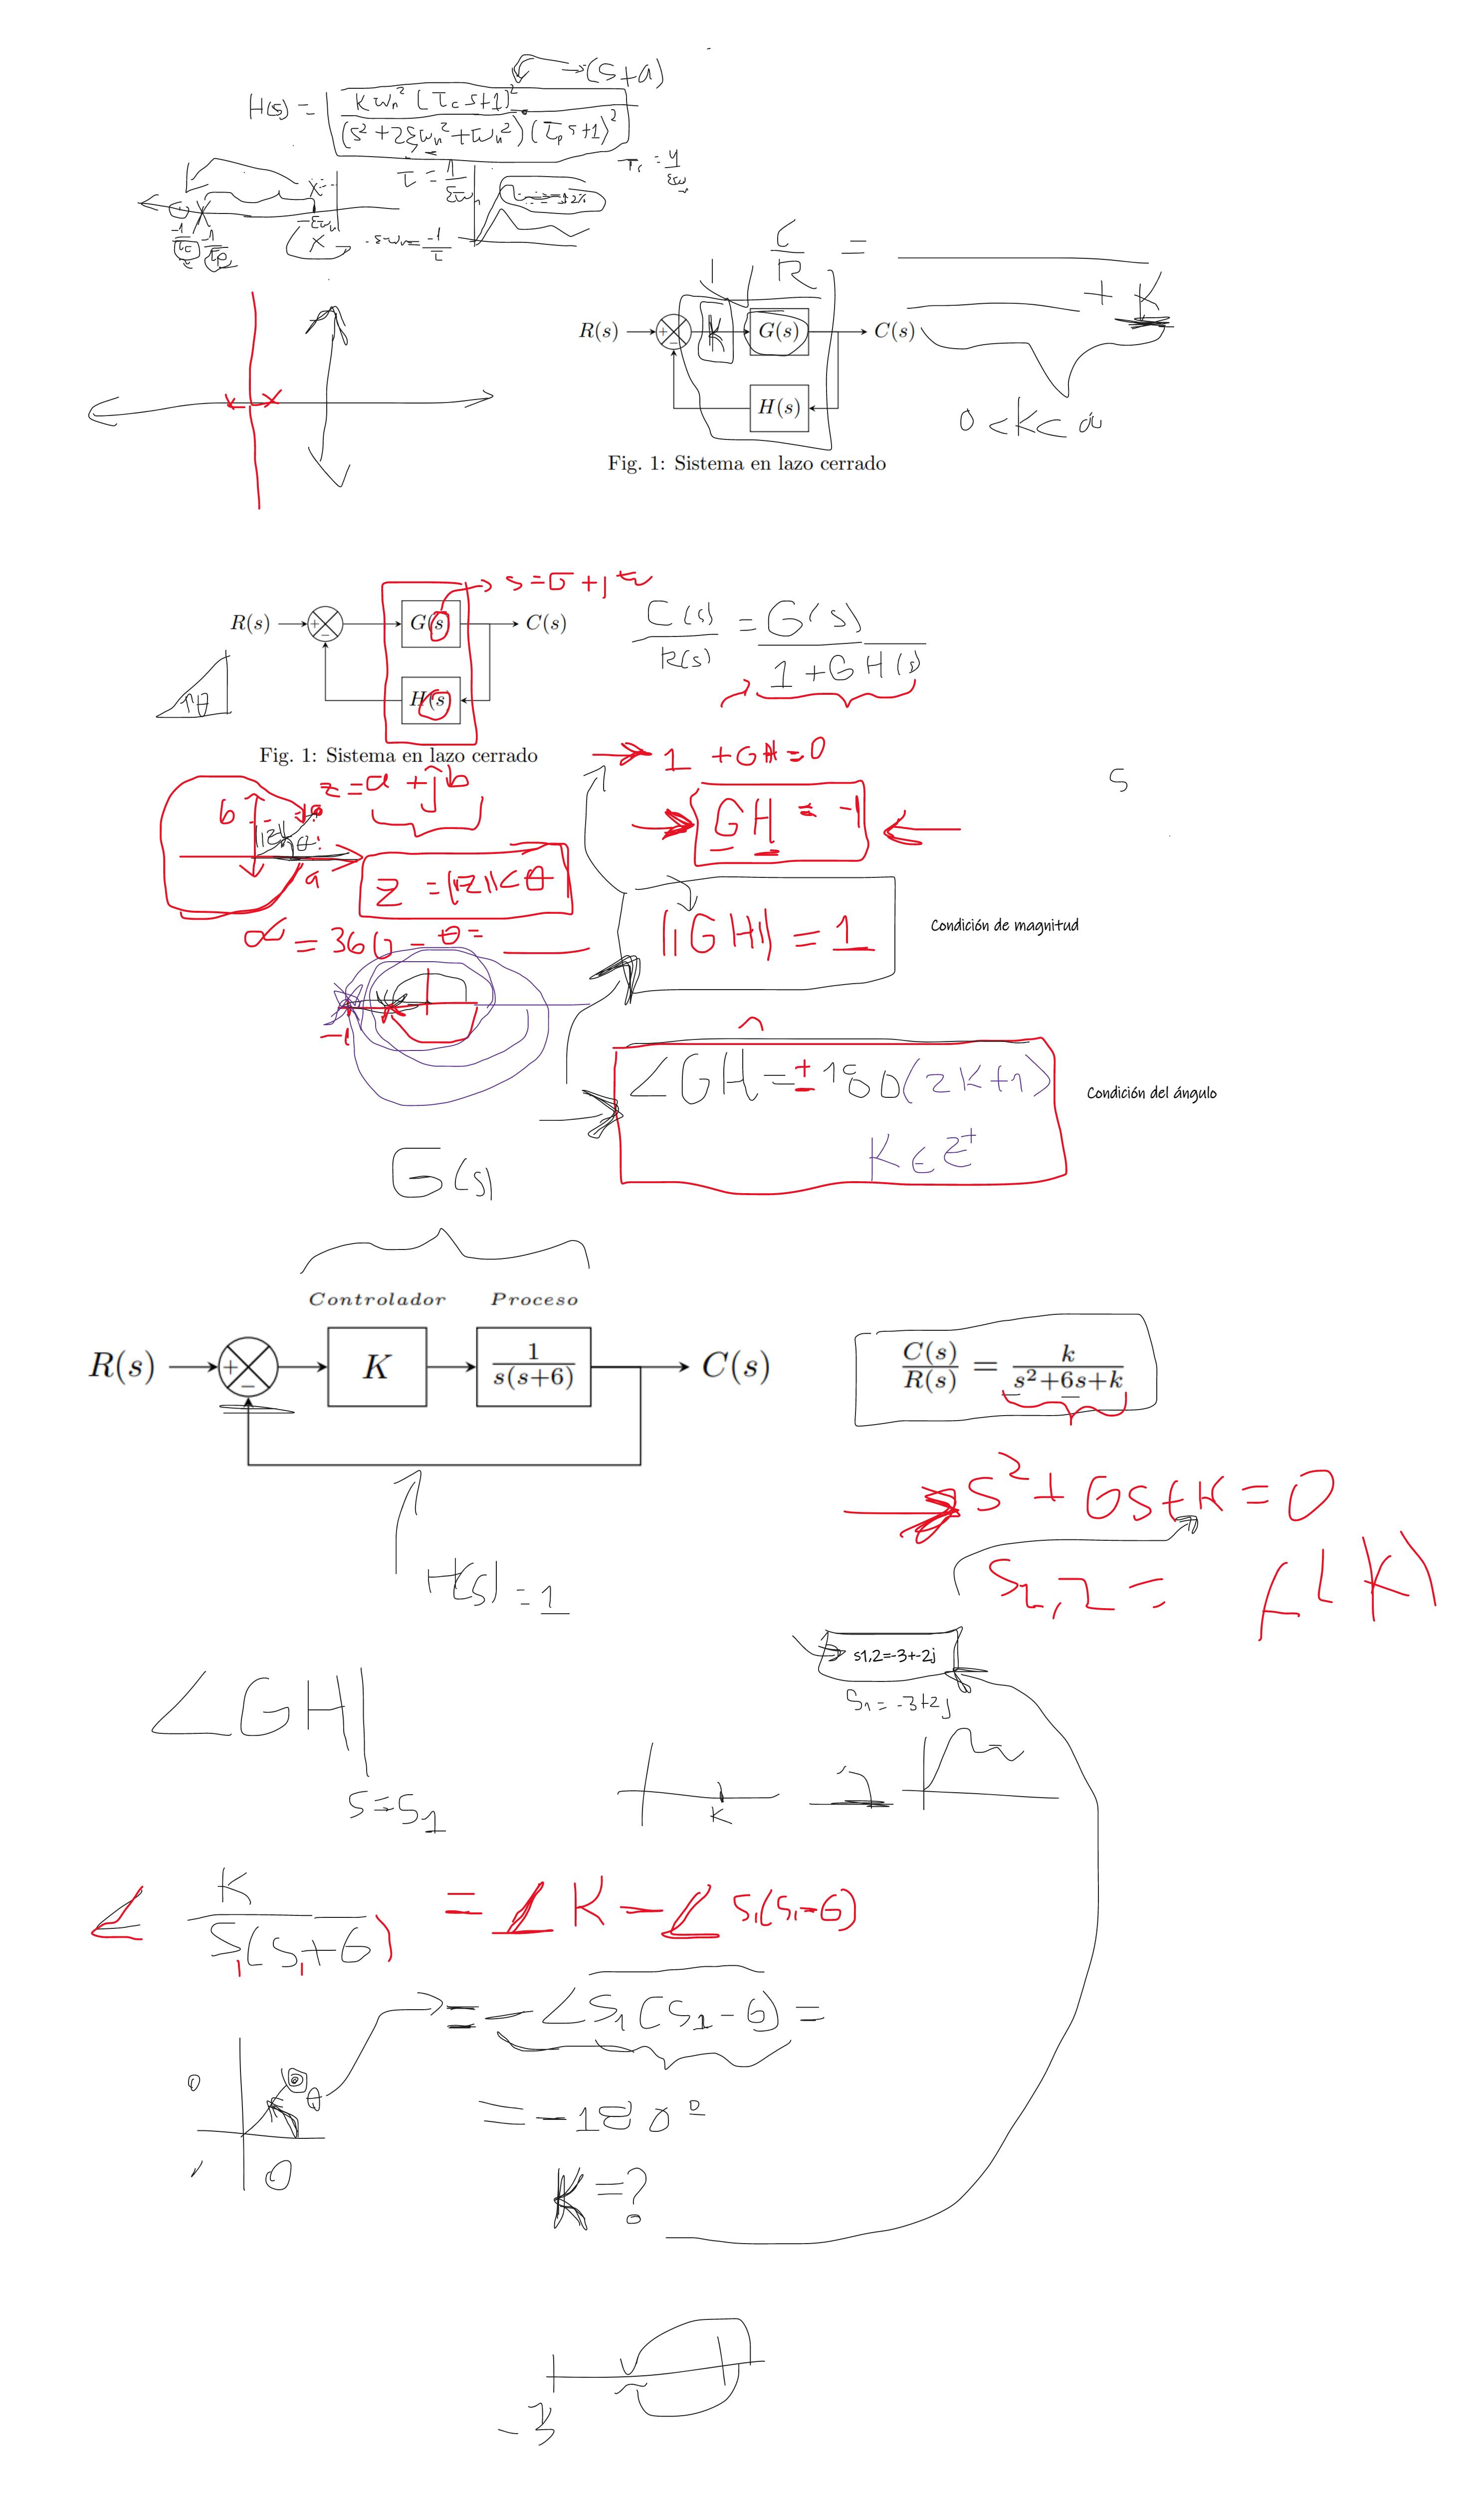 →(s+a)
H(s) = K ωn² (τc s+1)² / (s² + 2ξωn² + ωn²)(τp s+1)²
τ = 1/ξωn
-ξωn
-1/τc -1/τp
-ξωn = -1/τ
C/R =
+ K
R(s) + − K G(s) C(s)
H(s)
0 < K < ∞
Fig. 1: Sistema en lazo cerrado
s = σ + jω
R(s) + − G(s) C(s)
H(s)
C(s)/R(s) = G(s) / 1 + GH(s)
θ
Fig. 1: Sistema en lazo cerrado
1 + GH = 0
z = a + jb
b
||z||
θ
a
GH = -1
S
z = ||z||<θ
||GH|| = 1
Condición de magnitud
α = 360 - θ =
-1
∠GH = ± 180(2K+1)
Condición del ángulo
K ∈ Z⁺
G(s)
Controlador Proceso
R(s) + − K 1/s(s+6) C(s)
C(s)/R(s) = k/s²+6s+k
s² + 6s + K = 0
H(s) = 1
s1,2 = f(K)
s1,2=-3+-2j
S1 = -3+2j
∠GH|
s=s1
K
∠ K / S1(S1+6) = ∠K - ∠S1(S1-6)
= -∠S1(S1-6) =
θ
= -180°
K = ?
-3